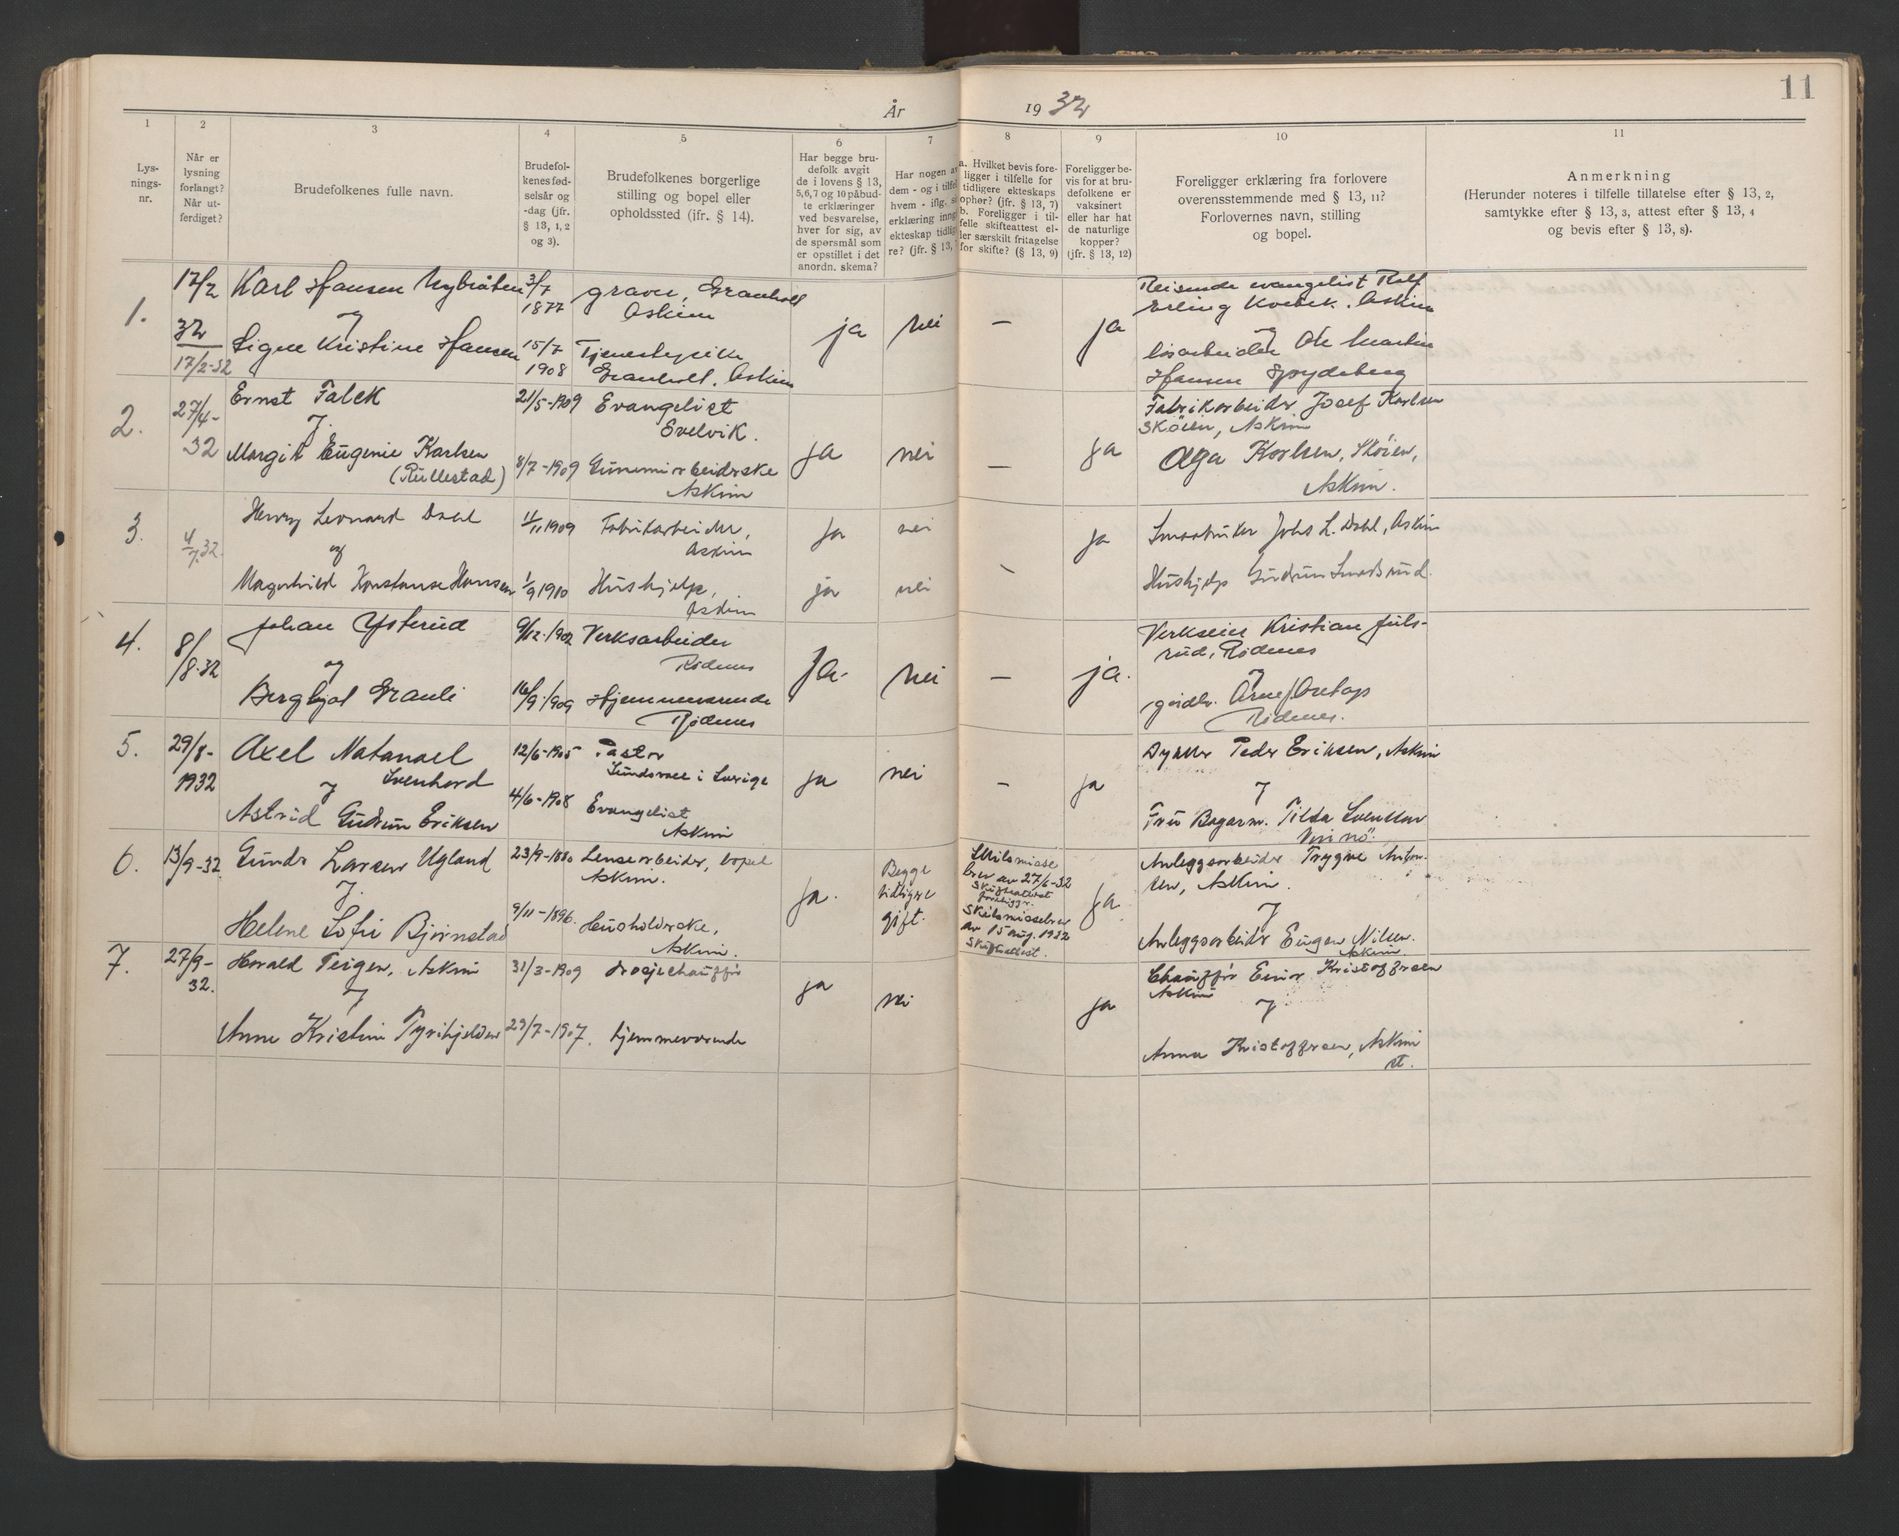 11
År 1932
1
2
3
4
5
6
7
8
9
10
11
Lys-
nings-
nr.
Når er
lysning
forlangt?
Når ut-
ferdiget?
Brudefolkenes fulle navn.
Brudefol-
kenes fød-
selsår og
-dag (jfr.
§ 13, 1, 2
og 3).
Brudefolkenes borgerlige
stilling og bopel eller
opholdssted (ifr. § 14).
Har begge bru-
defolk avgit
de i lovens § 13,
5,6,7 og 10 påbud-
te erklæringer
ved besvarelse,
hver for sig, av
de spørsmål som
er opstillet i det
anordn. skema?
Har nogen av
dem - og i tilfel
hvem - iflg. s
erklæring inng
ekteskap tidlig
re? (jfr. § 13,
a. Hvilket bevis fore-
ligger i tilfelle for
tidligere ekteskaps
ophør? (jfr. § 13, 7)
b. Foreligger i til-
felle skifteattest el-
ler særskilt fritagelse
for skifte? (§ 13, 9)
Foreligger be-
vis for at bru-
defolkene er
vaksinert
eller har hat
de naturlige
kopper?
(jfr. § 13, 12)
Foreligger erklæring fra forlovere
overensstemmende med § 13, 11?
Forlovernes navn, stilling
og bopel.
Anmerkning
(Herunder noteres i tilfelle tillatelse efter § 13, 2,
samtykke efter § 13, 3, attest efter § 13, 4
og bevis efter § 13, 8).
1.
17/2
32
17/2-32
Karl Hansen Nybråten
og
Signe Kristine Hansen
3/7
1877
15/7
1908
graver, Granholt
Askim
Tjenestepike
Granholt. Askim
ja
nei
—
ja
Reisende evangelist Rolf
Erling Kvebek. Askim
og
løsarbeider Ole Martin
Hansen Spydeberg
2.
27/4-
32
Ernst Falck
og
Margit Eugenie Karlsen
(Rullestad)
21/5-1909
8/7-1909
Evangelist
Svelvik.
Gummiarbeiderske
Askim
ja
nei
—
ja
Fabrikarbeider Josef Karlsen
Skøien, Askim
Aga Karlsen, Skøien,
Askim.
3.
4/7.32
Henry Leonard Dahl
og
Magnhild Konstanse Hansen
11/11 1909
1/9 1910
Fabrikarbeider,
Askim
Hushjelp,
Askim
ja
nei
ja
nei
ja
Småbruker Johs L. Dahl, Askim
Hushjelp Gudrun Smedsrud.
4.
8/8.32
Johan Ysterud
og
Bergljot Grauli
9/12.1902
16/9.1909
Verksarbeider
Rødenes
Hjemmeværende
Rødenes
ja.
nei
—
ja.
Verkseier Kristian Juls-
rud, Rødenes
og
gårdbr. Arne
Rødenes.
5.
29/8-
1932
Axel Natanael
Svenhard
og
Astrid Gudrun Eriksen
12/6-1905
4/6-1908
Pastor
Sundsvall i Sverige
Evangelist
Askim
ja
nei
—
ja
Dykker Peder Eriksen, Askim
og
Fru Bagarm. Tilda Svensson
6.
13/9-32.
Gunder Larsen Ugland
og
Helene Sofie Bjørnstad
23/9-1880
9/11-1896.
Lensearbeider, bopel
Askim.
Husholderske,
Askim.
ja.
Begge
tidligere
gift.
Skilsmisse
brev av 27/6-32
Skifteattest
foreligger.
Skilsmissebrev
av 15 aug. 1932
Skifteattest.
ja
Anleggsarbeider Trygve Anton-
sen, Askim.
og
Anleggsarbeider Eugen Nilsen.
Askim.
7.
27/9-
32.
Harald Teigen, Askim
og
Anne Kristine Tyrihjelden
31/3-1909
29/7-1907.
drosjechauffør
hjemmeværende
ja
nei
ja
Chauffør Einar Kristoffersen
Askim
og
Anna Kristoffersen, Askim
st.